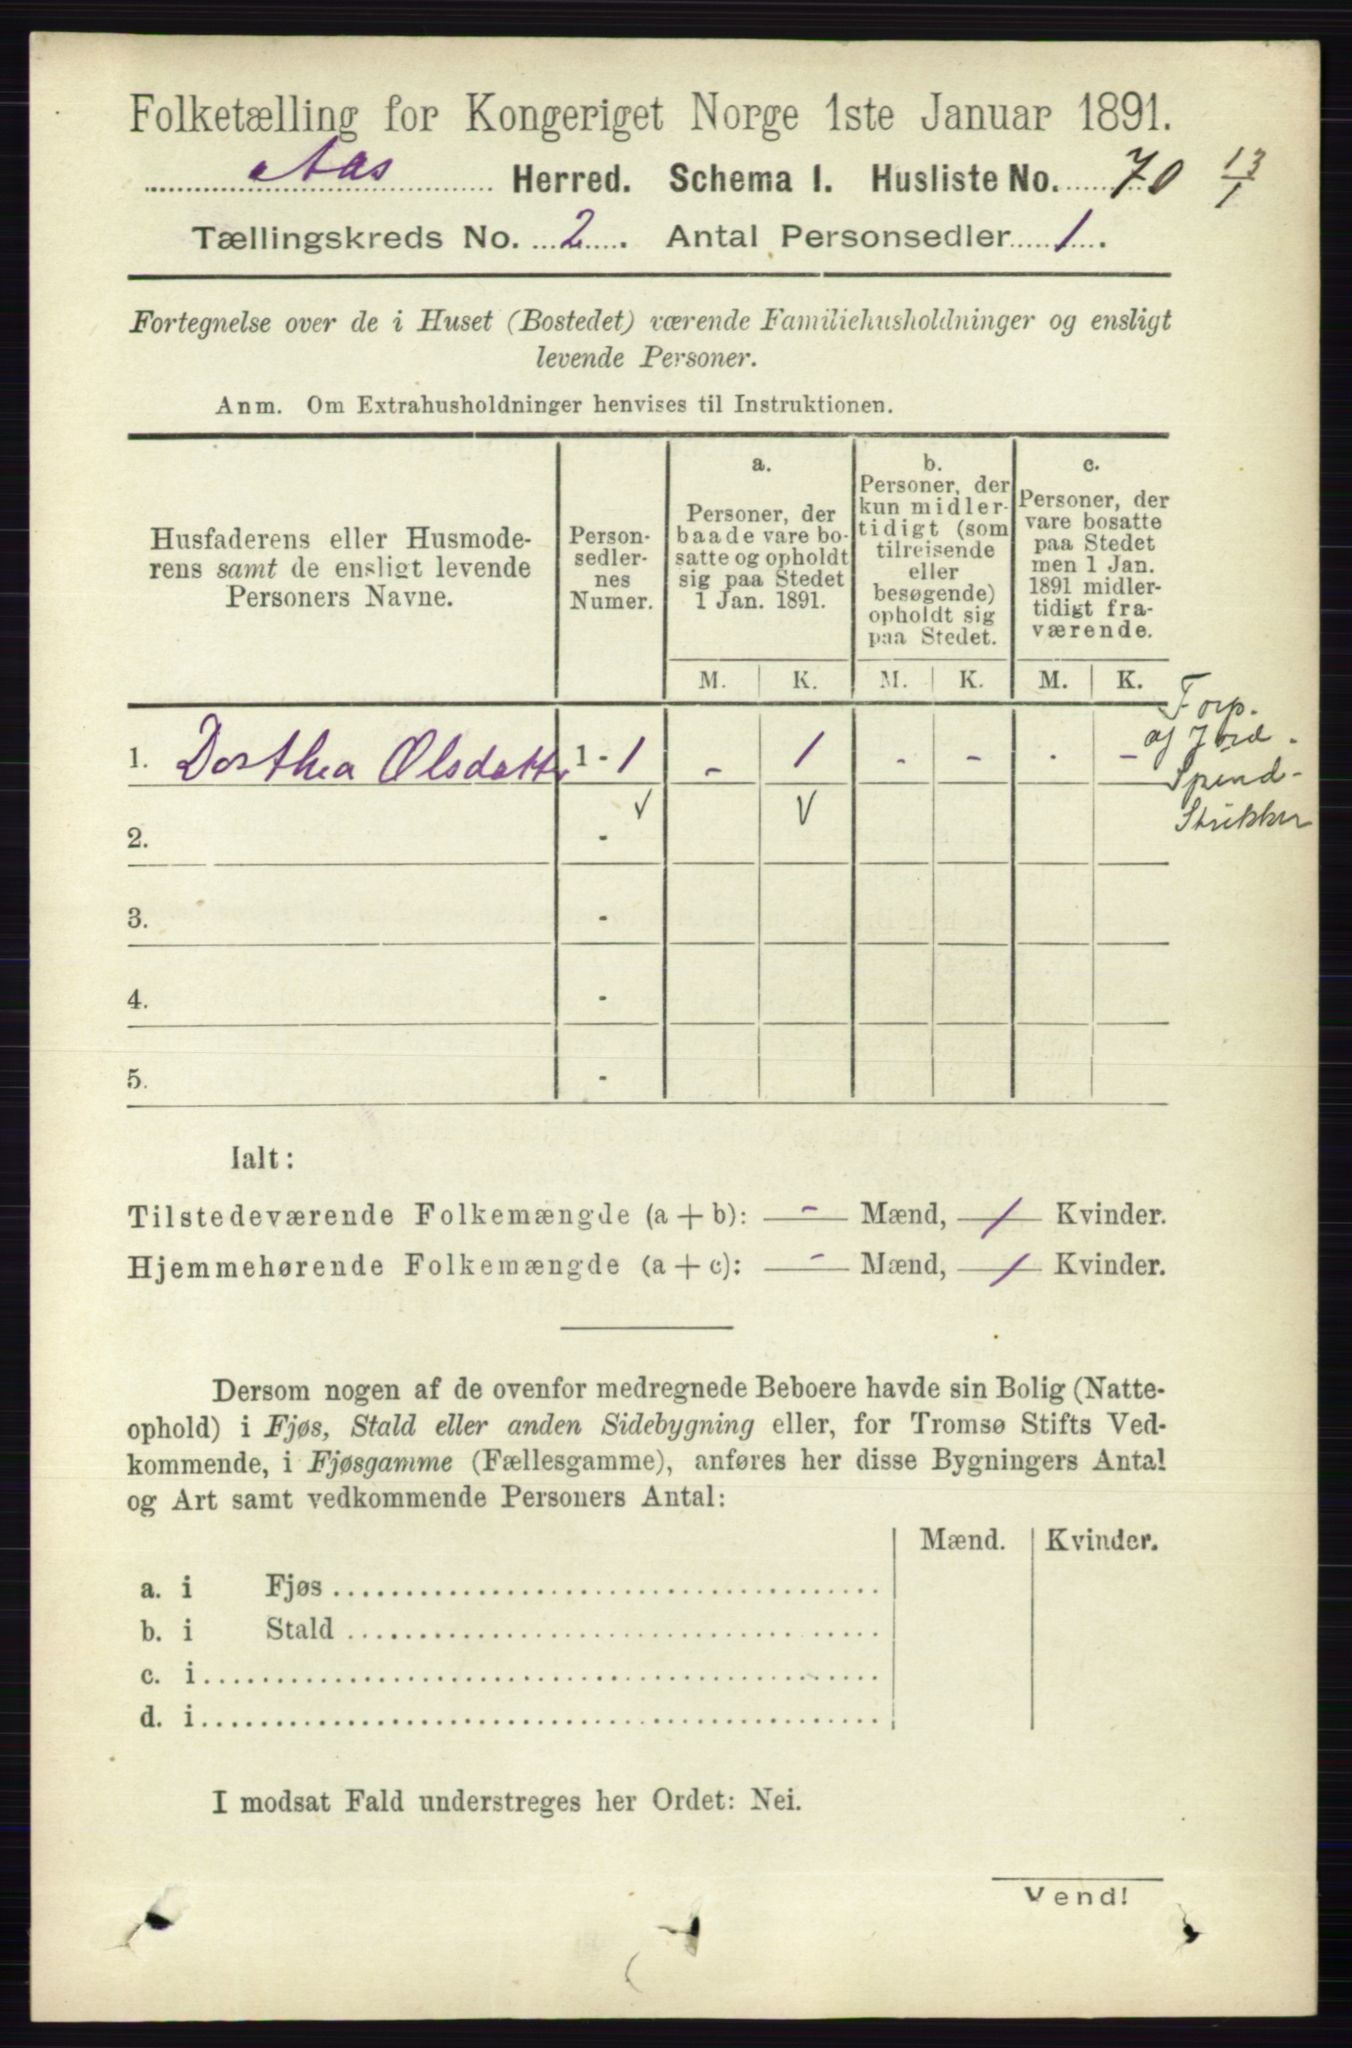 Folketælling for Kongeriget Norge 1ste Januar 1891.
Aas Herred. Schema I. Husliste No. 70 13/1
Tællingskreds No. 2. Antal Personsedler 1.
Fortegnelse over de i Huset (Bostedet) værende Familiehusholdninger og ensligt
levende Personer.
Anm. Om Extrahusholdninger henvises til Instruktionen.
Husfaderens eller Husmode-
rens samt de ensligt levende
Personers Navne.
Person-
sedler-
nes
Numer.
a.
Personer, der
baade vare bo-
satte og opholdt
sig paa Stedet
1 Jan. 1891.
b.
Personer, der
kun midler-
tidigt (som
tilreisende
eller
besøgende)
opholdt sig
paa Stedet.
c.
Personer, der
vare bosatte
paa Stedet
men 1 Jan.
1891 midler-
tidigt fra-
værende.
M. K. M. K. M. K.
1. Dorthea Olsdatter 1 - 1 - 1 - - - -
Forp.
af Jord.
Spind-
Strikker
2. -
3. -
4. -
5. -
Ialt:
Tilstedeværende Folkemængde (a + b): - Mænd, 1 Kvinder.
Hjemmehørende Folkemængde (a + c): - Mænd, 1 Kvinder.
Dersom nogen af de ovenfor medregnede Beboere havde sin Bolig (Natte-
ophold) i Fjøs, Stald eller anden Sidebygning eller, for Tromsø Stifts Ved-
kommende, i Fjøsgamme (Fællesgamme), anføres her disse Bygningers Antal
og Art samt vedkommende Personers Antal:
Mænd. Kvinder.
a. i Fjøs
b. i Stald
c. i
d. i
I modsat Fald understreges her Ordet: Nei.
Vend!